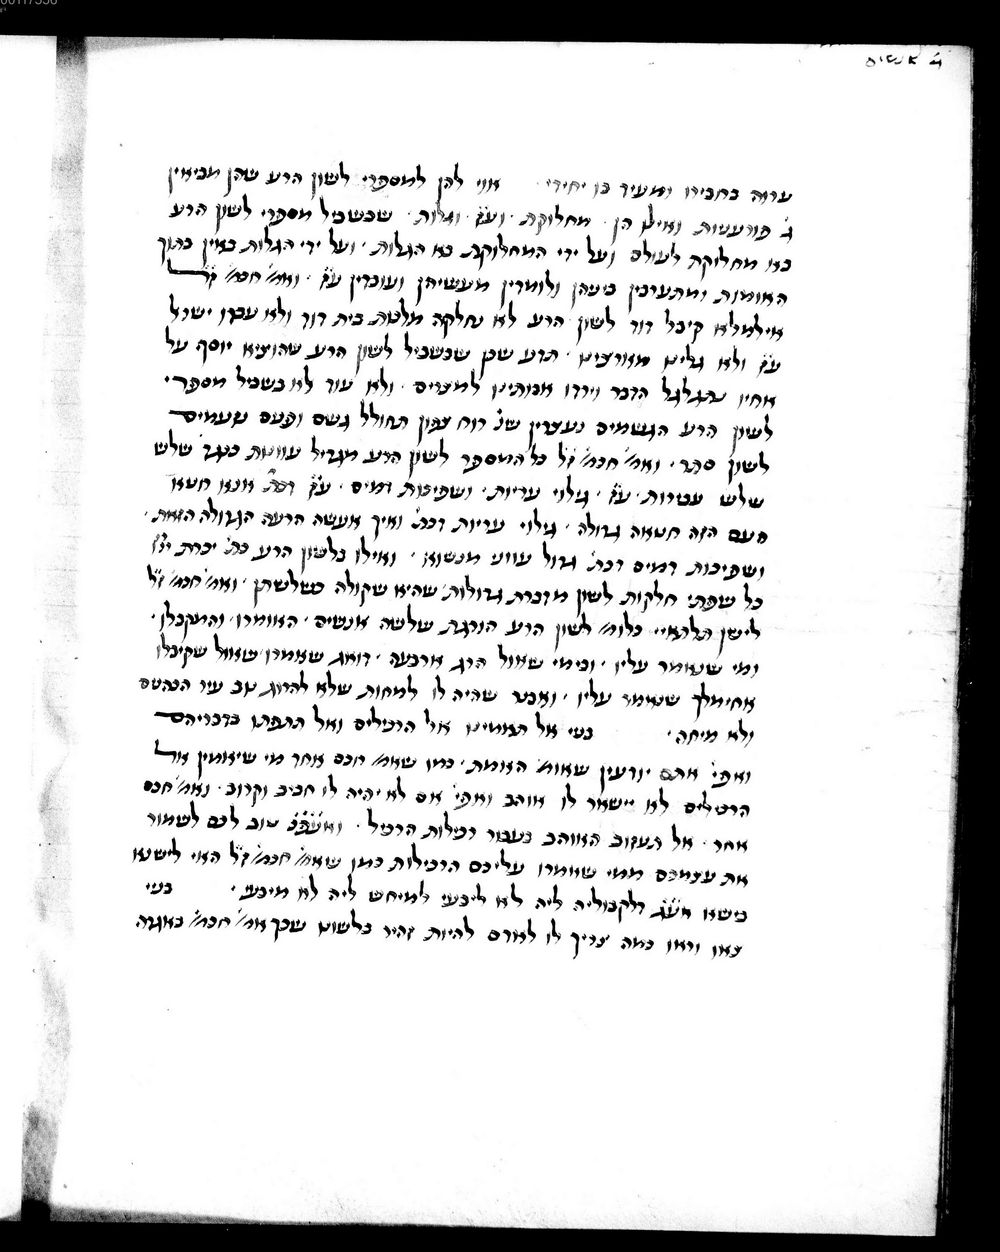 ד אנשים
ערוה בחבירו ומעיד בו יחידי אוי להן למספרי לשון הרע שהן מביאין
ג' פורעניות ואילו הן מחלוקת וע"ז וגלות שבשביל מספרי לשון הרע
באו מחלוקת לעולם ועל ידי המחלוקת בא הגלות ועל ידי הגלות באין בתוך
האומות ומתערבין ביניהן ולומדין מעשיהן ועובדין ע"ז ואמ' חכמ' ז"ל
אילמלא קיבל דוד לשון הרע לא נחלקה מלכות בית דוד ולא עבדו ישראל
ע"ז ולא גלינו מארצינו תדע שכן שבשביל לשון הרע שהוציא יוסף על
אחיו נתגלגל הדבר וירדו אבותינו למצרים ולא עוד לא בשביל מספרי
לשון הרע הגשמים נעצרין שנ' רוח צפון תחולל גשם ופנים נזעמים
לשון סתר ואמ' חכמ' ז"ל כל המספר לשון הרע מגדיל עוונות כנגד שלש
שלש עבירות ע"ז גילוי עריות ושפיכות דמים ע"ז דכת' אנא חטא
העם הזה חטאה גדולה גילוי עריות דכת' ואיך אעשה הרעה הגדולה הזאת
ושפיכות דמים דכת' גדול עווני מנשוא ואילו בלשון הרע כת' יכרת ייי
כל שפתי חלקות לשון מדברת גדולות שהיא שקולה כשלשתן ואמ' חכמ' ז"ל
לישן תלתאיי כלומ' לשון הרע הורגת שלשה אנשים האומרו והמקבלו
ומי שנאמר עליו ובימי שאול הרג ארבעה דואג שאומרו שאול שקיבלו
אחימלך שנאמר עליו ואבנר שהיה לו למחות שלא להרוג נוב עיר הכהנים
ולא מיחה בניי אל תאמינו אל הרכילים ואל תתפתו בדבריהם
ואפי' אתם יודעין שאומ' האומת כמו שאמ' חכם אחד מי שיאמין אל
הרכילים לא יישאר לו אוהב ואפי' אם לא יהיה לו חביב וקרוב ואמ' חכם
אחר אל תעזוב האוהב בעבור רכילות הרכיל ואעפ"כ טוב לכם לשמור
את עצמכם ממי שאומרו עליכם הרכילות כמו שאמ' חכמ' ז"ל האי לישנא
בישא אע"ג דלקבוליה ליה לא ליבעי למיחש ליה לא מיבעי בניי
צאו וראו כמה צריך לו לאדם להיות זהיר בלשונו שכך אמ' חכמ' באגדה